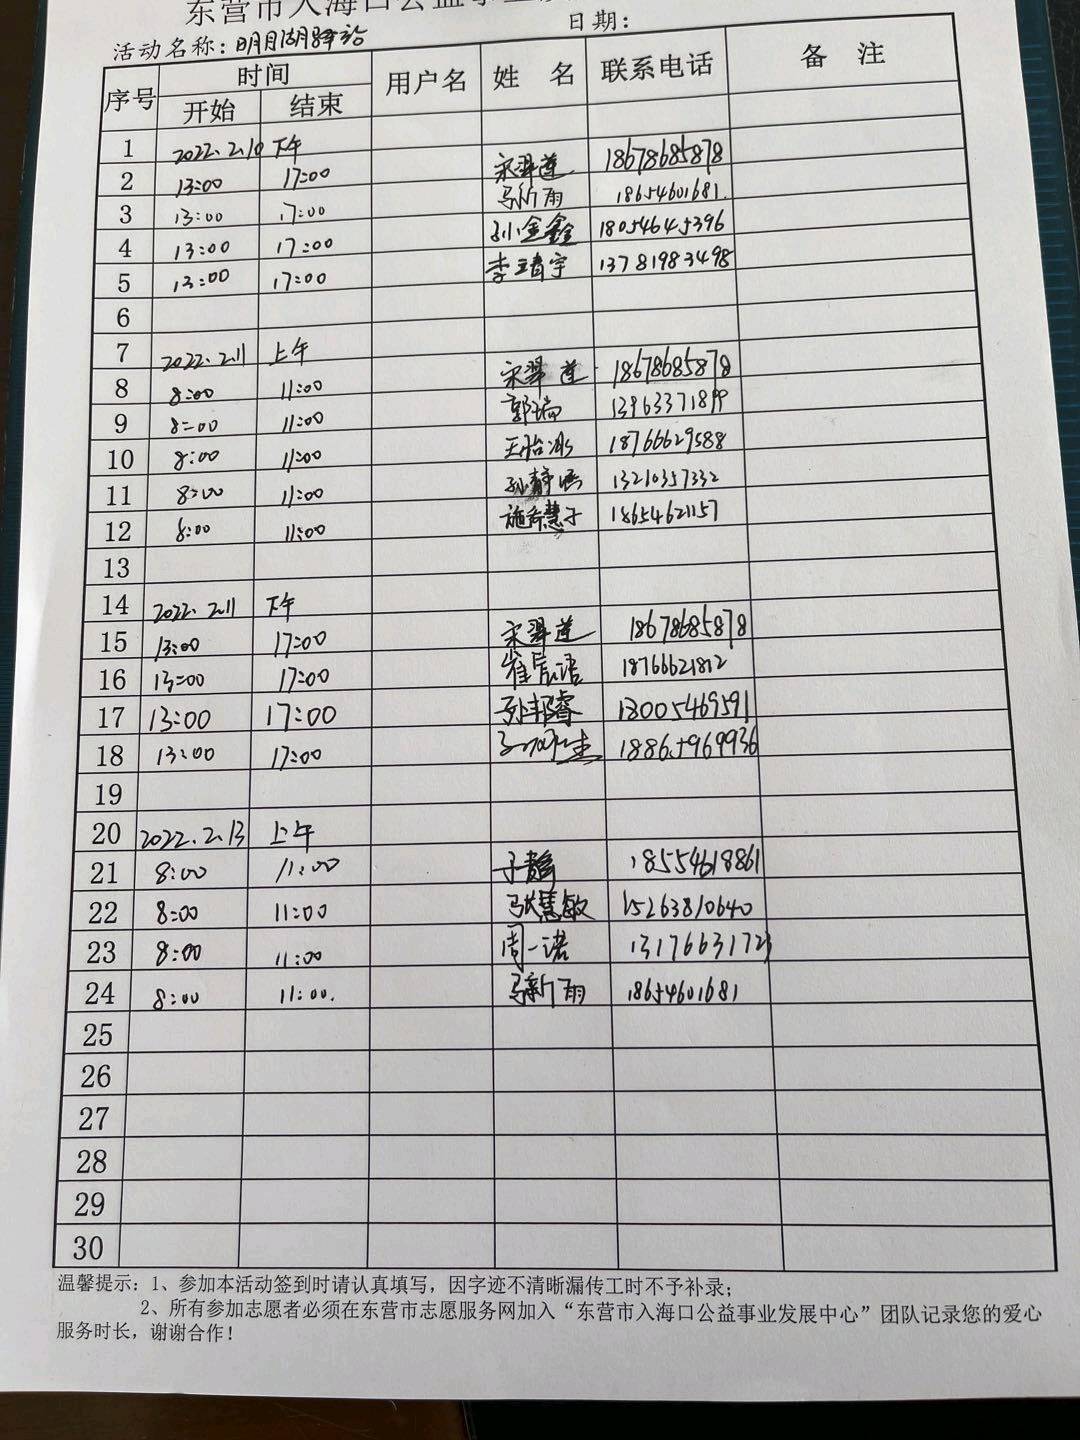 东营市入海口公益事业发
活动名称：明月湖驿站 日期：
序号 时间 用户名 姓 名 联系电话 备 注
开始 结束
1 2022.2.10 下午
2 13:00 17:00 宋翠莲 18678685878
3 13:00 17:00 马新雨 18654601681.
4 13:00 17:00 孙金鑫 18054645396
5 13:00 17:00 李靖宇 13781983498
6
7 2022.2.11 上午
8 8:00 11:00 宋翠莲 18678685878
9 8:00 11:00 郭瑞 13963371899
10 8:00 11:00 王怡冰 18766629588
11 8:00 11:00 孙静 13210357332
12 8:00 11:00 施 慧子 18654621157
13
14 2022.2.11 下午
15 13:00 17:00 宋翠莲 18678685878
16 13:00 17:00 崔宸语 18766621812
17 13:00 17:00 孙邦睿 13005469591
18 13:00 17:00 18865969936
19
20 2022.2.13 上午
21 8:00 11:00 18554618861
22 8:00 11:00 张慧敏 15263810640
23 8:00 11:00 周一诺 1317663172
24 8:00 11:00. 马新雨 18654601681
25
26
27
28
29
30
温馨提示：1、参加本活动签到时请认真填写，因字迹不清晰漏传工时不予补录；
2、所有参加志愿者必须在东营市志愿服务网加入“东营市入海口公益事业发展中心”团队记录您的爱心
服务时长，谢谢合作！